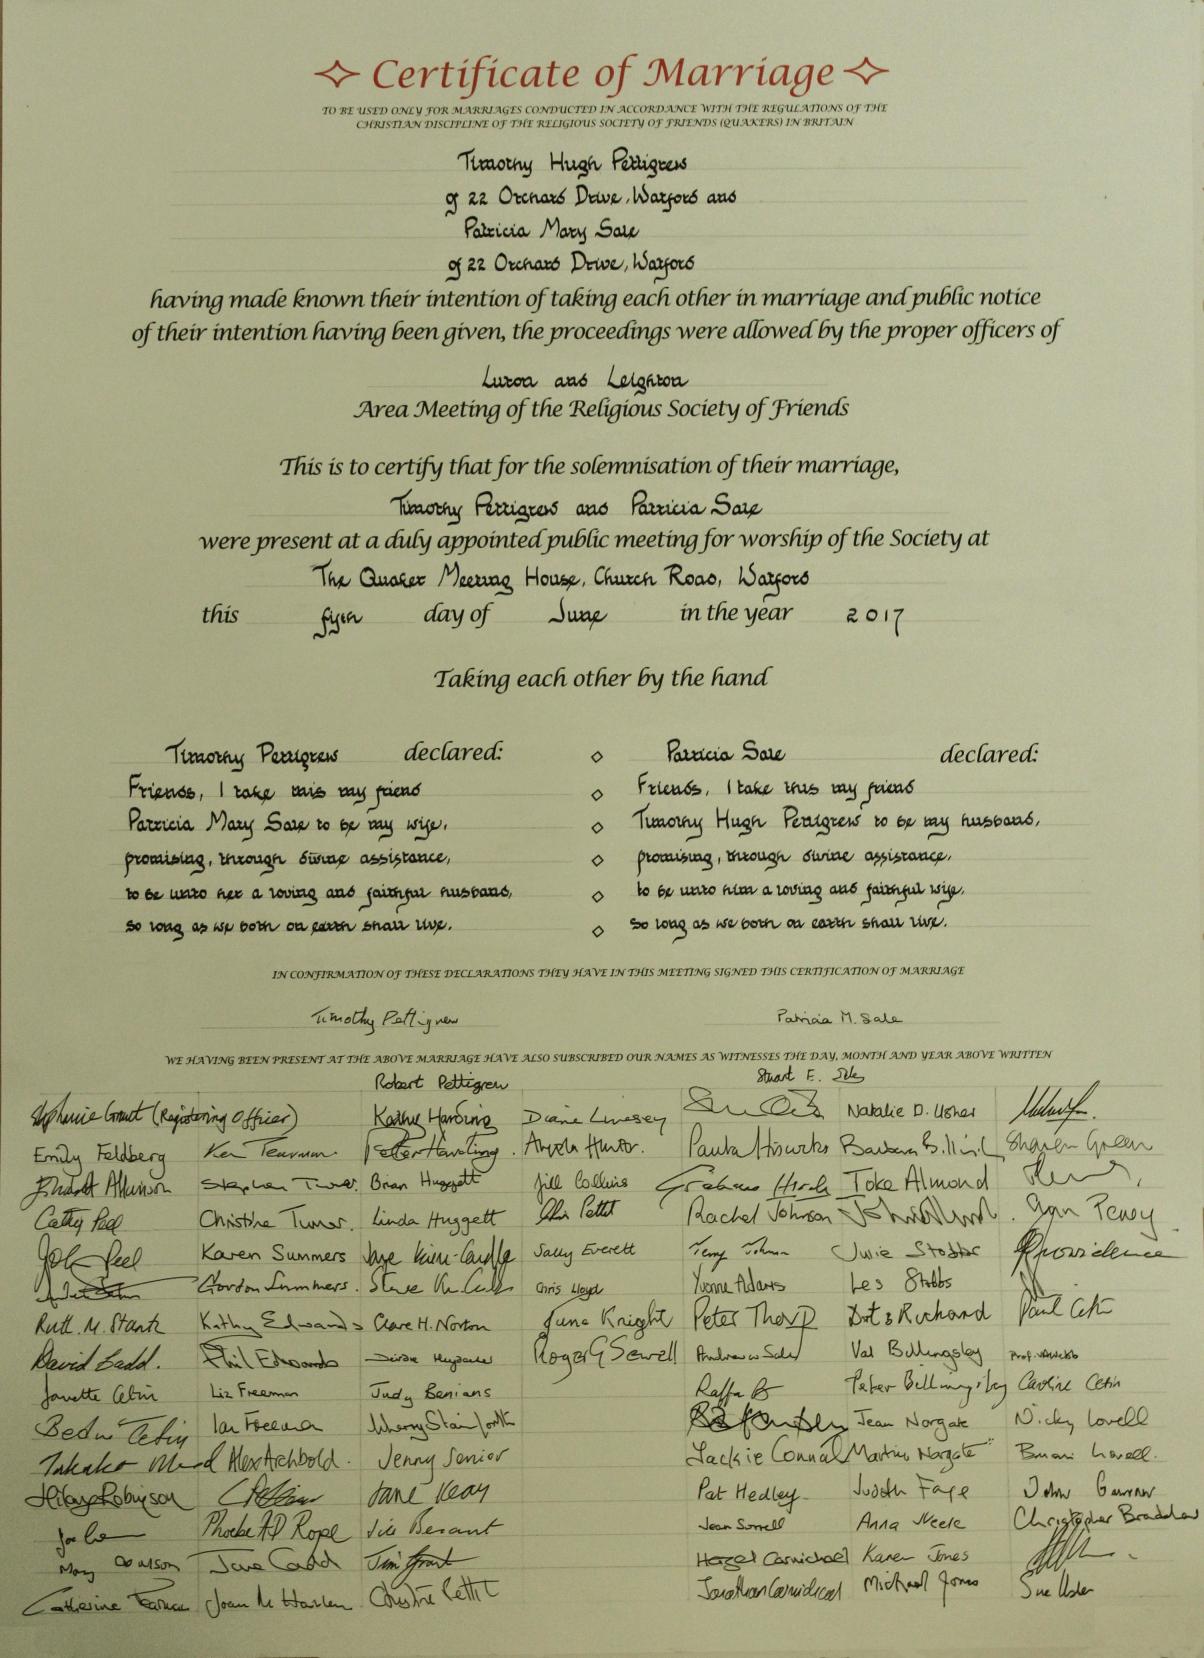 Certificate of Marriage
TO BE USED ONLY FOR MARRIAGES CONDUCTED IN ACCORDANCE WITH THE REGULATIONS OF THE
CHRISTIAN DISCIPLINE OF THE RELIGIOUS SOCIETY OF FRIENDS (QUAKERS) IN BRITAIN
Timothy Hugh Pettigrew
of 22 Orchard Drive, Watford and
Patricia Mary Sale
of 22 Orchard Drive, Watford
having made known their intention of taking each other in marriage and public notice
of their intention having been given, the proceedings were allowed by the proper officers of
Luton and Leighton
Area Meeting of the Religious Society of Friends
This is to certify that for the solemnisation of their marriage,
Timothy Pettigrew and Patricia Sale
were present at a duly appointed public meeting for worship of the Society at
The Quaker Meeting House, Church Road, Watford
this fifth day of June in the year 2017
Taking each other by the hand
Timothy Pettigrew declared:
Friends, I take this my friend
Patricia Mary Sale to be my wife,
promising, through divine assistance,
to be unto her a loving and faithful husband,
so long as we both on earth shall live.
Patricia Sale declared:
Friends, I take this my friend
Timothy Hugh Pettigrew to be my husband,
promising, through divine assistance,
to be unto him a loving and faithful wife,
so long as we both on earth shall live.
IN CONFIRMATION OF THESE DECLARATIONS THEY HAVE IN THIS MEETING SIGNED THIS CERTIFICATION OF MARRIAGE
Timothy Pettigrew Patricia M. Sale
WE HAVING BEEN PRESENT AT THE ABOVE MARRIAGE HAVE ALSO SUBSCRIBED OUR NAMES AS WITNESSES THE DAY, MONTH AND YEAR ABOVE WRITTEN
Robert Pettigrew Stuart E.
Grant (Registering Officer) Kathy Harding Diane Livesey Natalie D. Usher
Emily Feldberg Ken Peter Harding Angela Hunter Paula Barbara Sharon Green
Atkinson Stephen Turner Brian Huggett Jill Collins Graham Toke Almond
Cathy Peel Christine Turner. Linda Huggett Chris Pettit Rachel Johnson
Peel Karen Summers Sally Everett Terry Julie Stobbs Providence
Gordon Summers. Steve Chris Lloyd Yvonne Adams Les Stobbs
Ruth. M. Kathy Edwards Clare H. Norton June Knight Peter Thorp Dot & Richard Paul Cetin
David Ladd. Phil Edwards Roger G Sewell Andrew Sale Val Billingsley Prof.
Janette Cetin Liz Freeman Judy Benians Raffa B Peter Billingsley Caroline Cetin
Cetin Ian Freeman Jean Norgate Nicky Lovell
Takako Alex Archbold. Jenny Senior Jackie Connal Martin Norgate Brian Lovell.
Hilary Robinson Jane Keay Pat Hedley Judith Faye John
Phoebe AD Rope Anna Neele Christopher Bradshaw
Mary Jane Cadd Jim Grant Hazel Carmichael Karen Jones
Catherine Joan M Christine Pettit Jonathan Carmichael Michael Jones Sue Usher